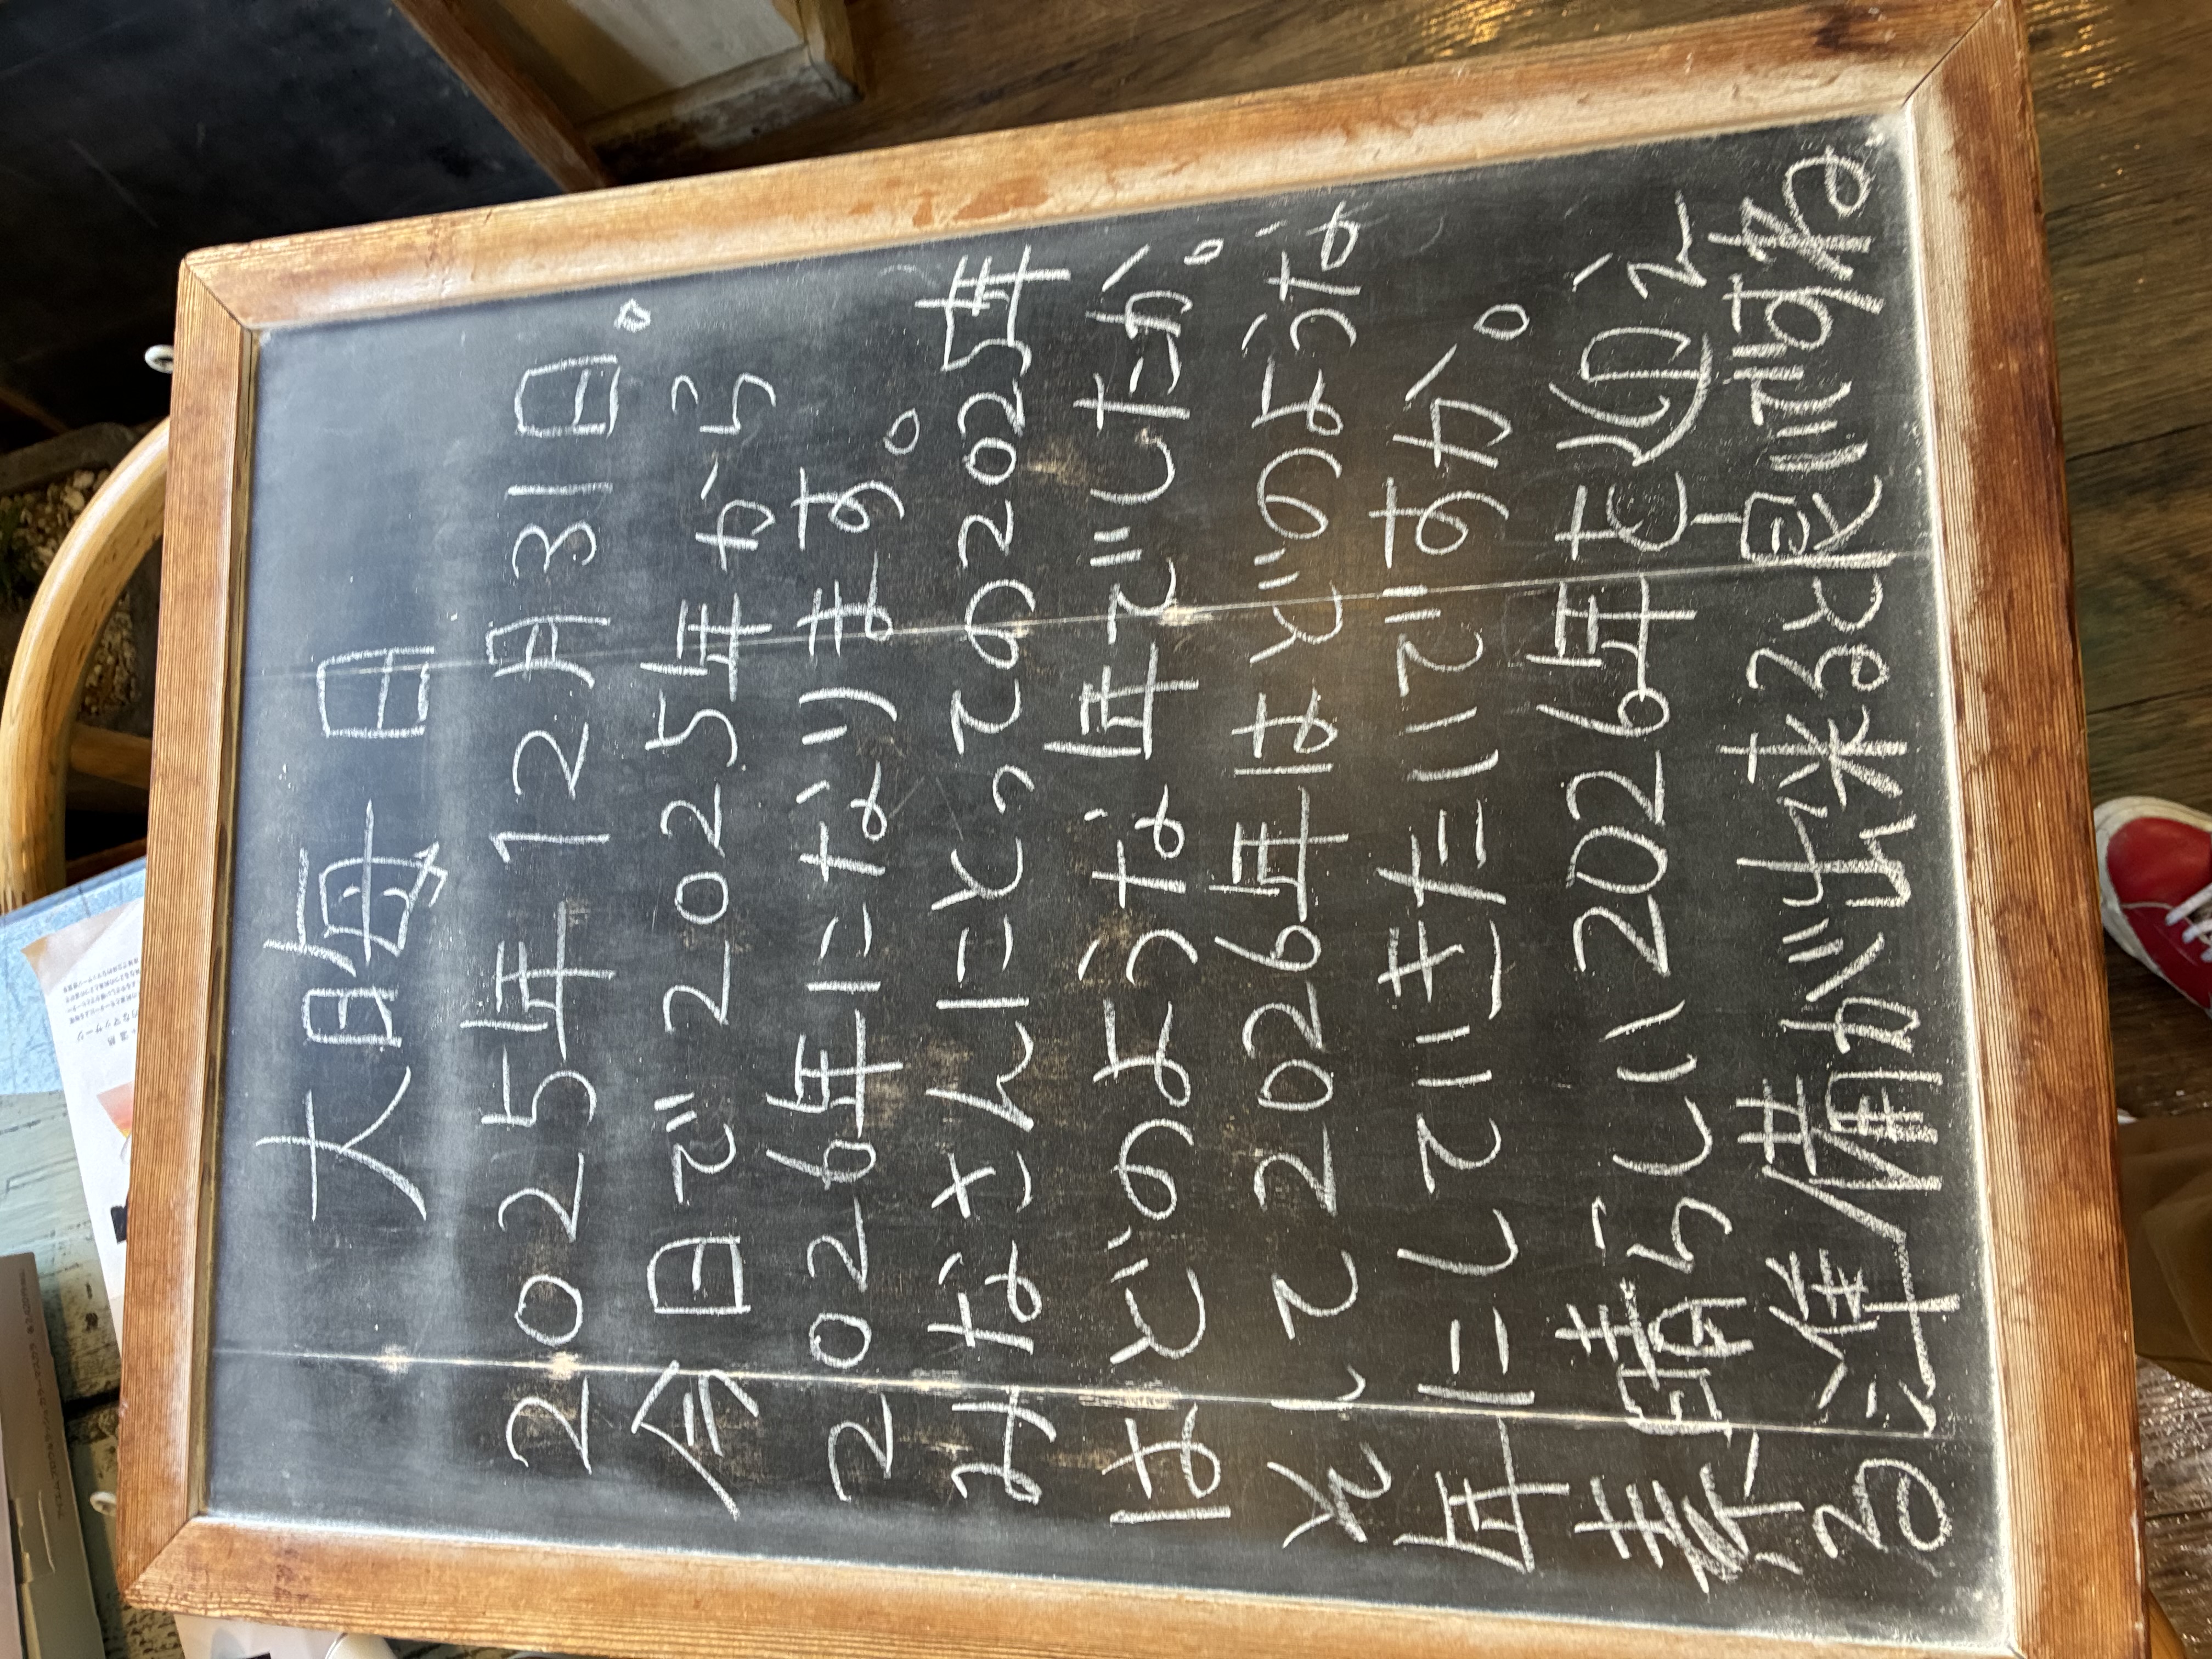 大晦日
2025年12月31日。
今日で2025年から
2026年になります。
みなさんにとっての2025年
はどのような年でしたか。
そして2026年はどのような
年にしていきたいですか。
素晴らしい2026年を迎え
る準備が出来ると良いですね